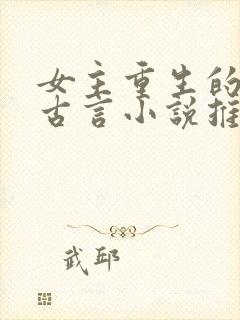 女主重生的
古言小說推
武邱